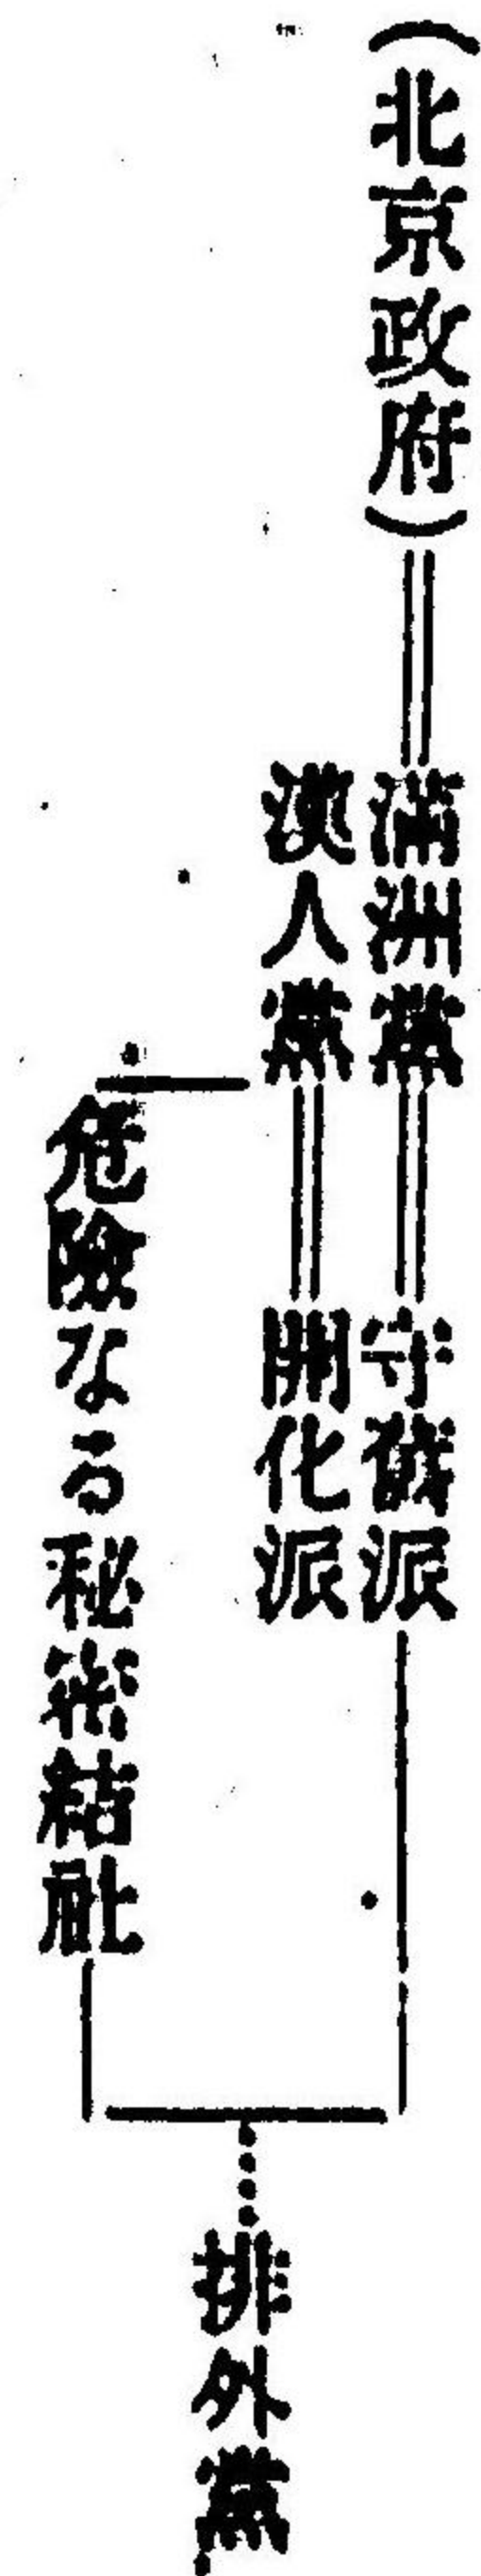 (北京政府)
滿洲黨
守舊派
漢人黨
開化派
危險なる秘密結社
排外黨